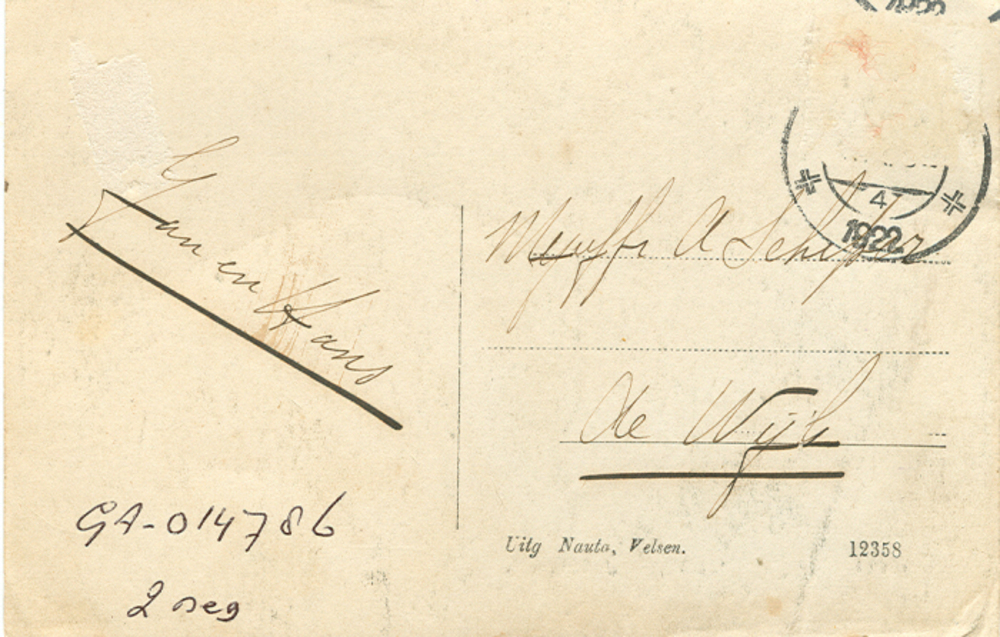 1922
4
1922
Jan en Hans
Mejuffr A Schipper
de Wijk
GA-014786
2 neg
Uitg Nauta, Velsen.
12358